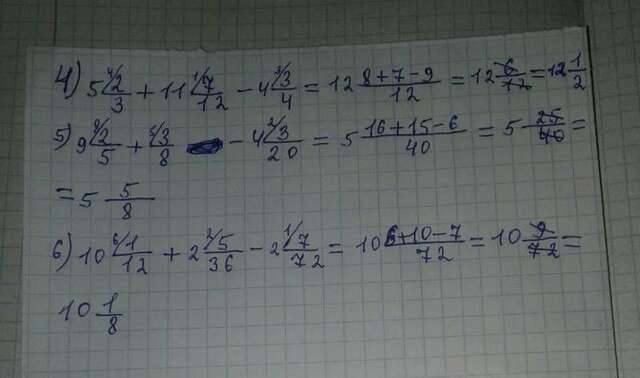 4) 5 4/2/3 + 11 1/7/12 - 4 3/3/4 = 12 8+7-9/12 = 12 6/12 = 12 1/2
5) 9 8/2/5 + 5/3/8 - 4 2/3/20 = 5 16+15-6/40 = 5 25/40 =
= 5 5/8
6) 10 6/1/12 + 2 2/5/36 - 2 1/7/72 = 10 6+10-7/72 = 10 9/72 =
10 1/8